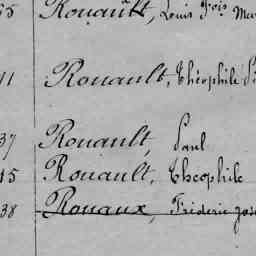 65 Rouault, Louis Fois Mar
11 Rouault, Théophile
37 Rouault, Paul
15 Rouault, Théophile
38 Rouaux, Fréderic Jos